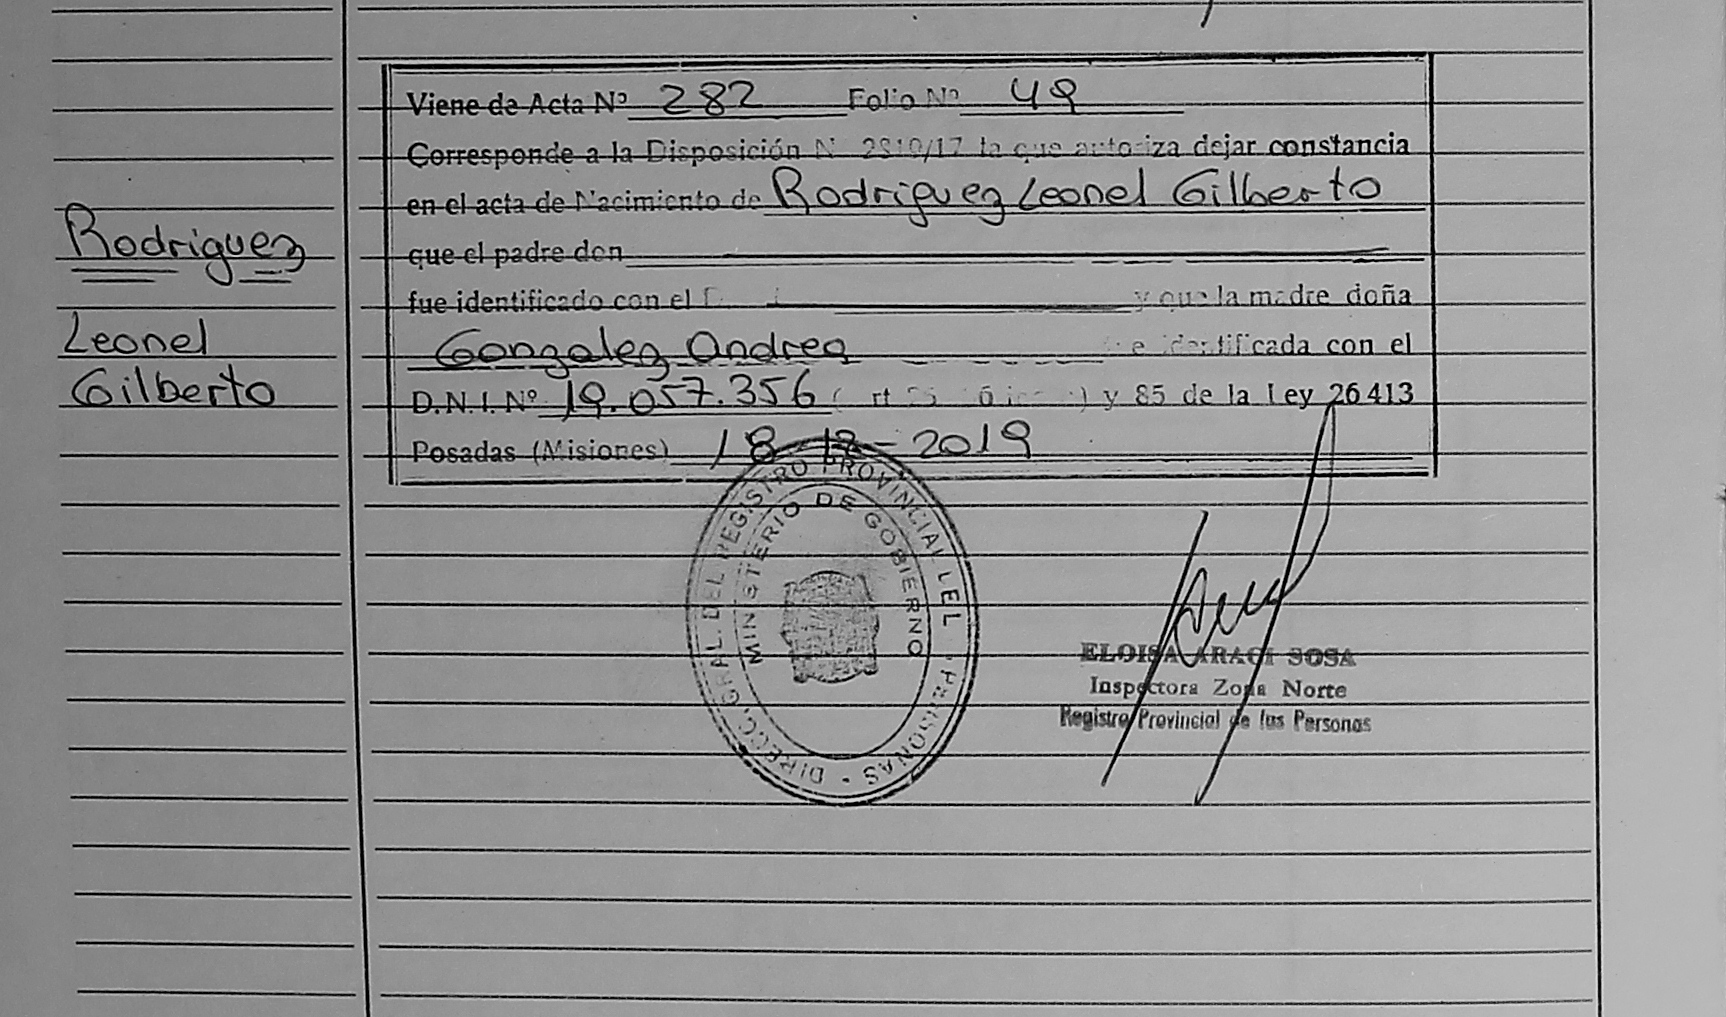 Rodriguez
Leonel
Gilberto
Viene de Acta Nº 282 Folio Nº 49
Corresponde a la Disposición N 2810/17 la que autoriza dejar constancia
en el acta de Nacimiento de Rodriguez Leonel Gilberto
que el padre don
fue identificado con el y que la madre doña
Gonzalez Andrea identificada con el
D.N.I. Nº 19.057.356 y 85 de la Ley 26413
Posadas (Misiones) 18-12-2019
DIRECC. GRAL. DEL REGISTRO PROVINCIAL DE PERSONAS
MINISTERIO DE GOBIERNO
ELOISA ARACI SOSA
Inspectora Zona Norte
Registro Provincial de las Personas